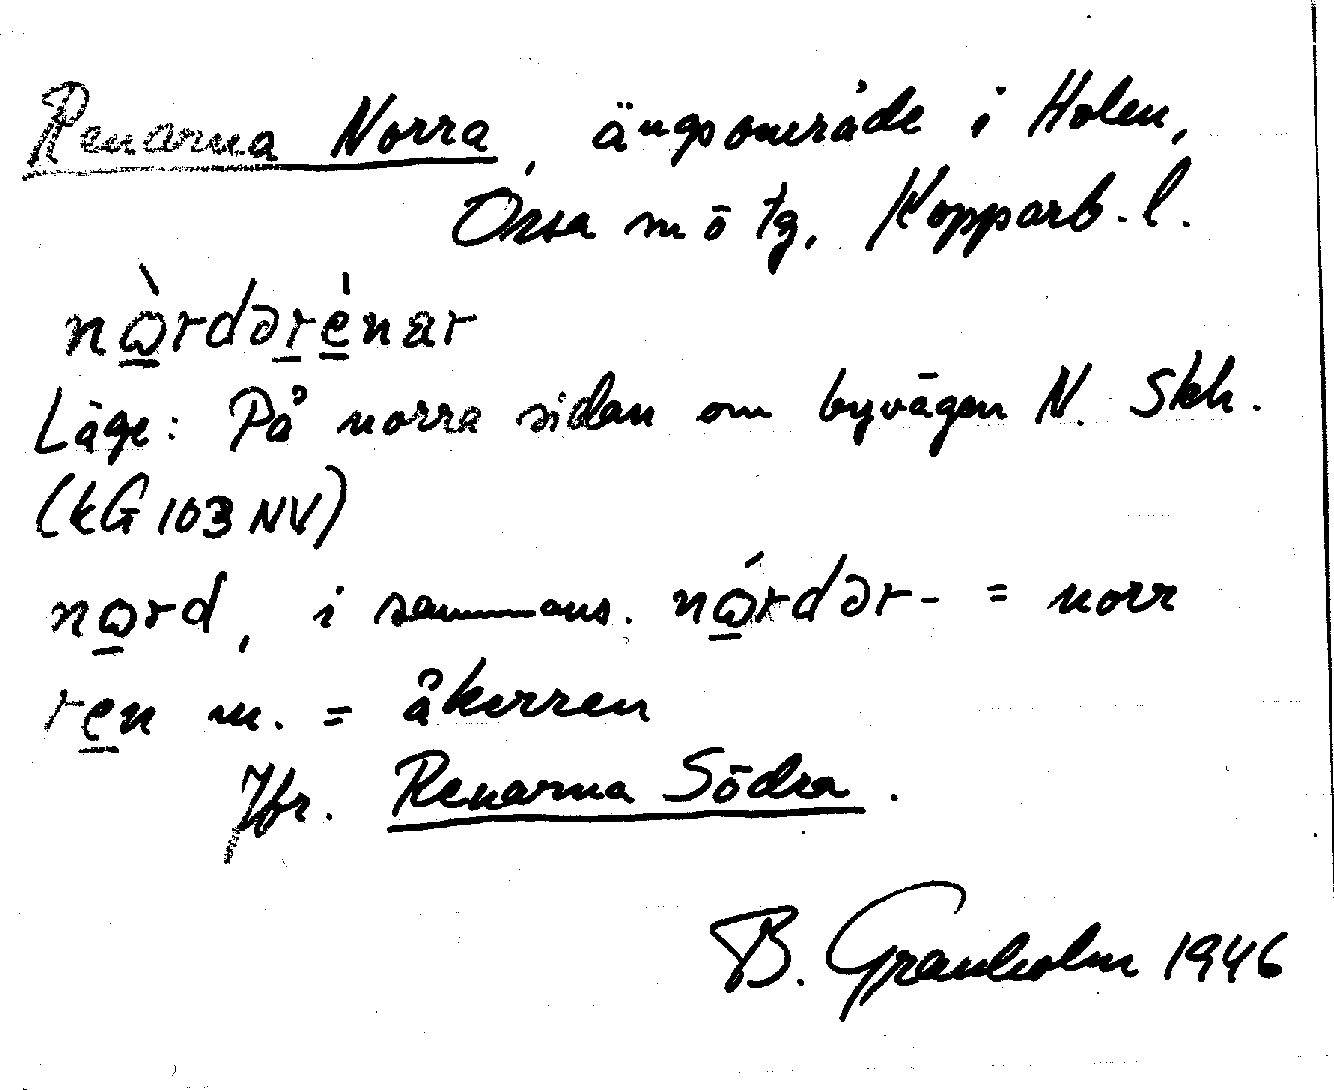 Renarna Norra, ängsområde i Holen,
Orsa sn ö tg. Kopparb. l.
nɷ̠̀rdər̠é̠nar
Läge: På norra sidan om byvägen N. Skh.
(kG 103 NV)
nɷ̠rd, i sammans. nɷ̠́rdər- = norr
re̠n m. = åkerren
Jfr. Renarna Södra.
B. Granholm 1946